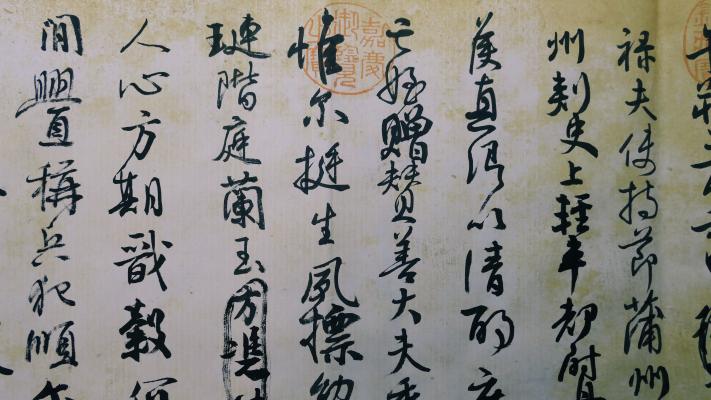 禄夫使持節蒲州
州刾史上輕車都尉
侯真卿以清酌庶
亡姪贈賛善大夫季
惟尔挺生夙標幼
璉階庭蘭玉方憑
人心方期戩穀何
閒舋稱兵犯順
嘉慶御覽之寶